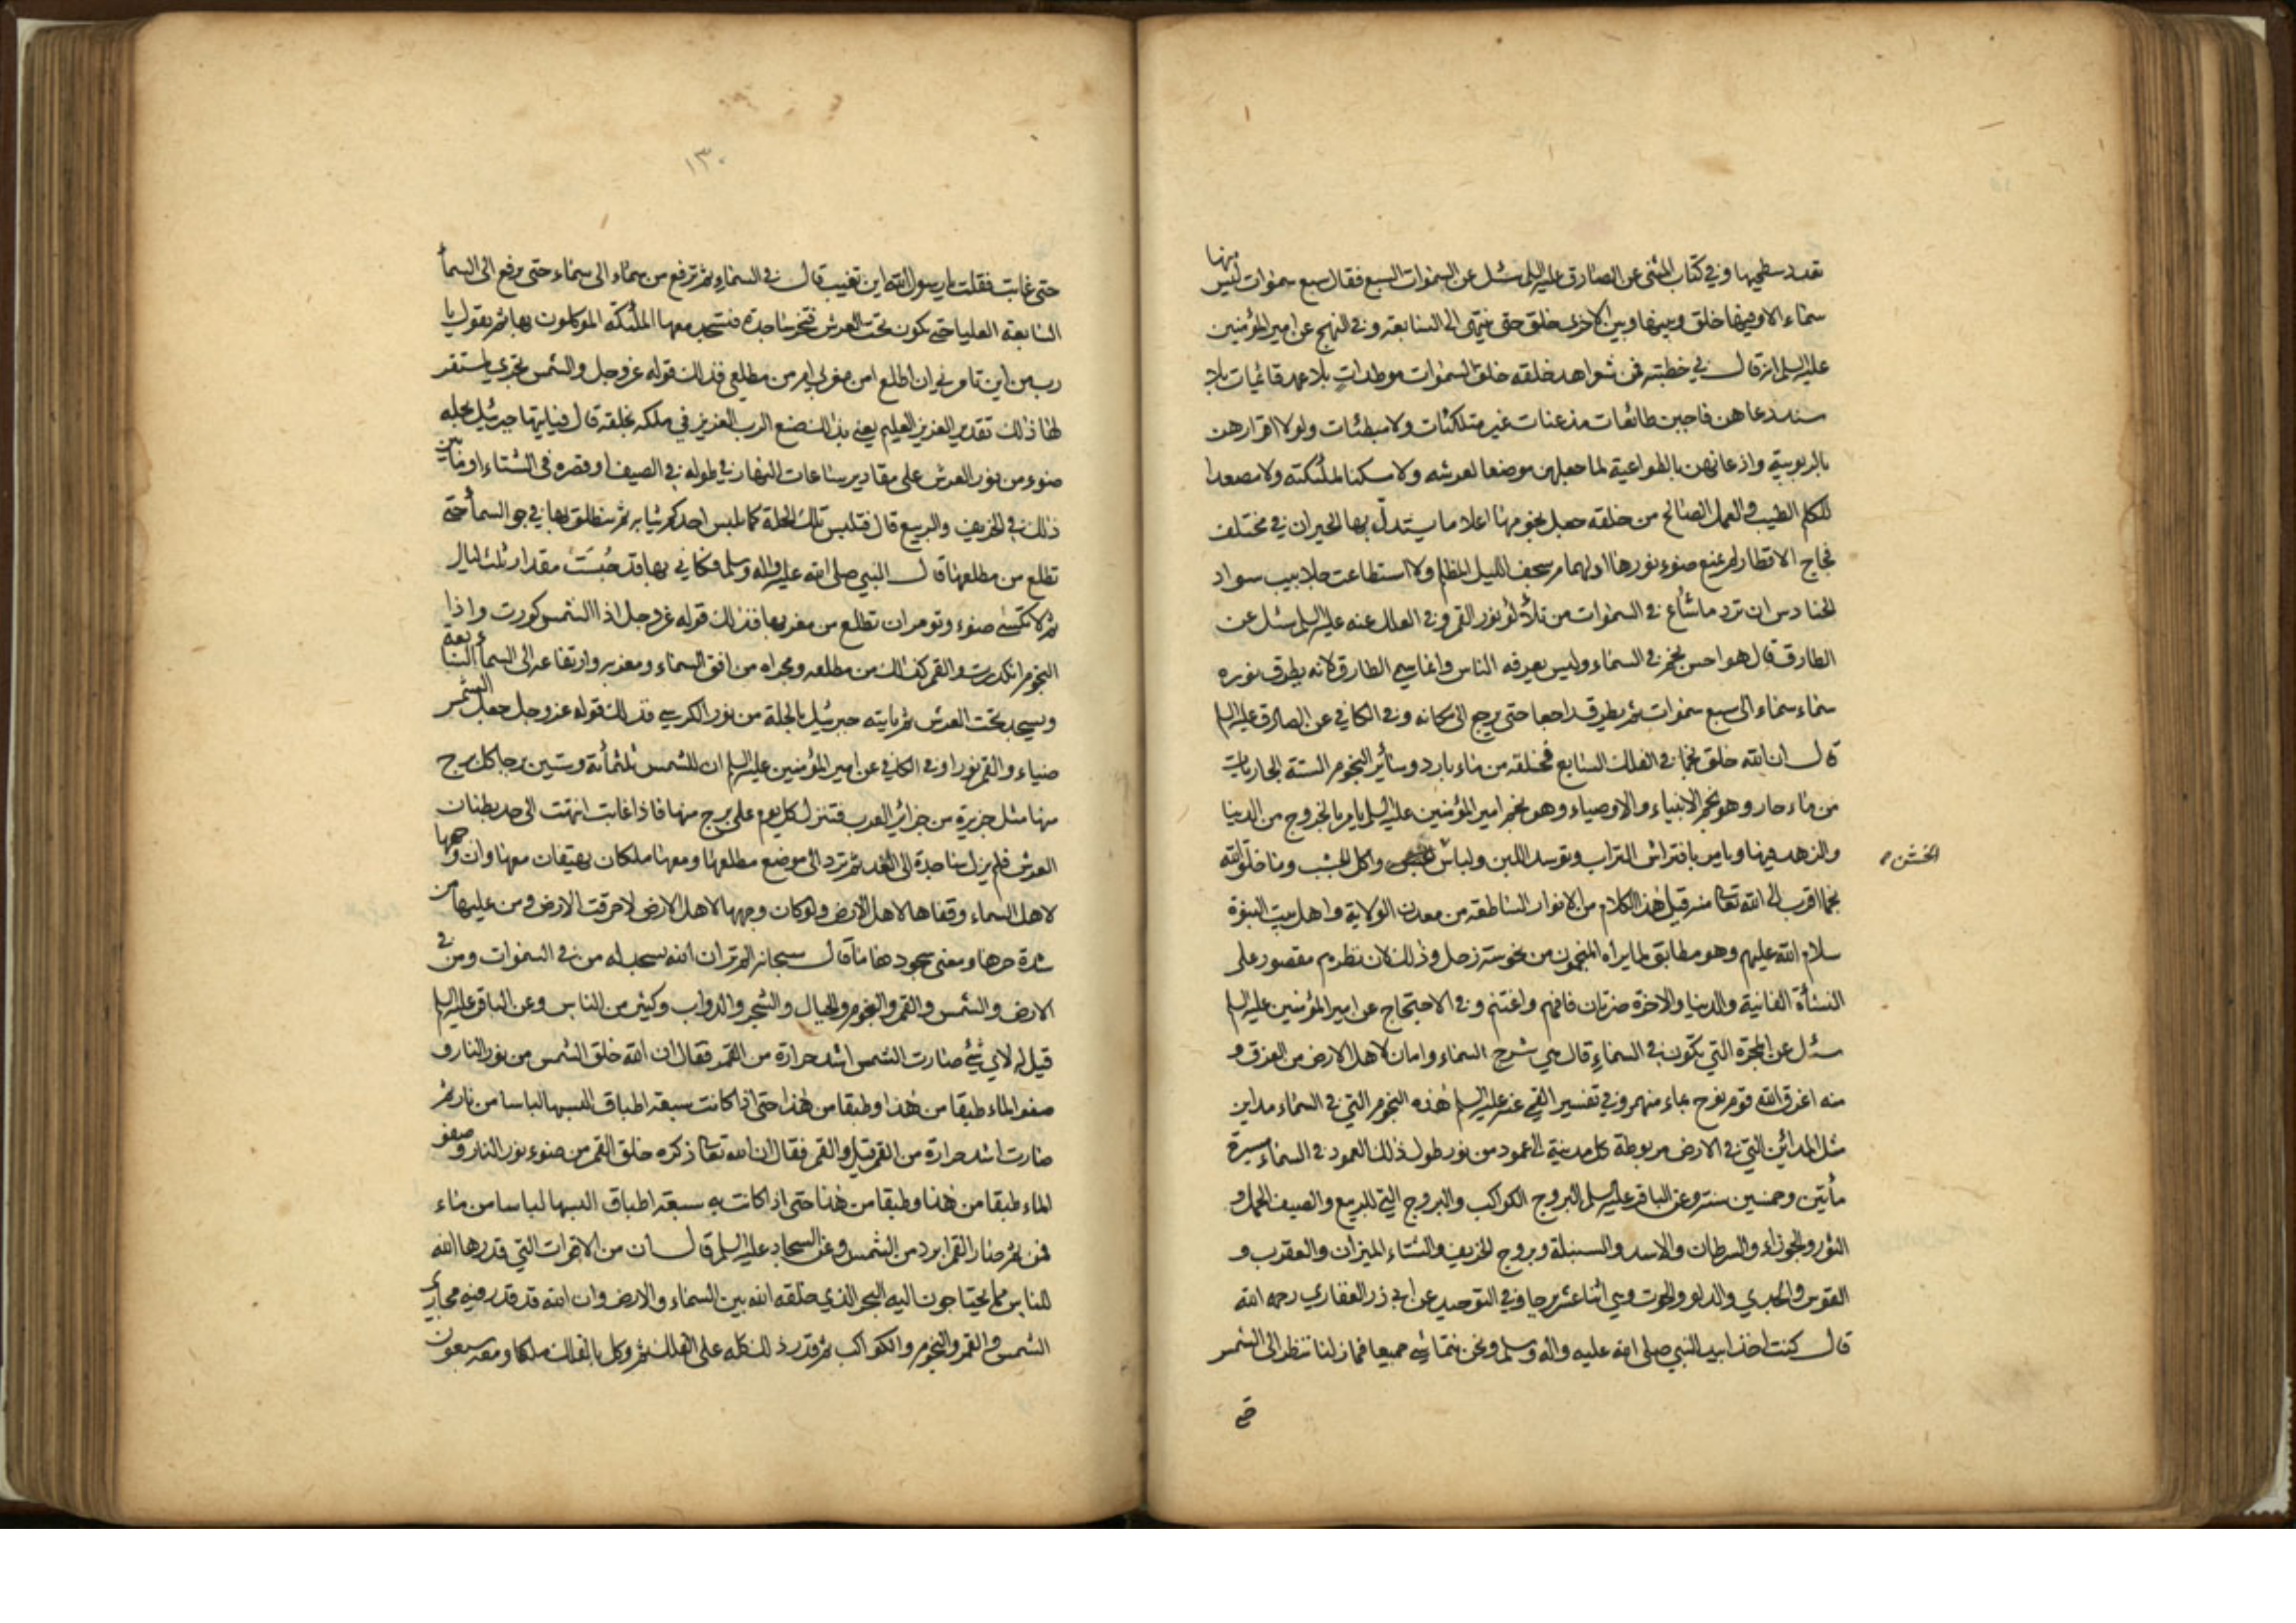 تعدد سطحيها وفي كتاب المثنى عن الصادق عليه السلم سئل عن السموات السبع فقال سبع سموات ليس منها
سماء الا وفيها خلق وبينها وبين الاخرى خلق حتى ينتهى الى السابعة وفي النهج عن امير المؤمنين
عليه السلم انه قال في خطبته فمن شواهد خلقه خلق السموات موطدات بلا عمد قائمات بلا
سند دعاهن فاجبن طائعات مذعنات غير متلكئات ولا مبطئات ولولا اقرارهن
بالربوبية واذعانهن بالطواعية لما جعلهن موضعا لعرشه ولا مسكنا لملئكته ولا مصعدا
للكلم الطيب والعمل الصالح من خلقه جعل نجومها اعلاما يستدل بها الحيران في مختلف
فجاج الاقطار لم يمنع ضوء نورها ادلهمام سجف الليل المظلم ولا استطاعت جلابيب سواد
الحنادس ان ترد ما شاع في السموات من تلألؤ نور القمر وفي العلل عنه عليه السلم سئل عن
الطارق قال هو احسن نجم في السماء وليس يعرفه الناس وانما سمي الطارق لانه يطرق نوره
سماء سماء الى سبع سموات ثم يطرق راجعا حتى يرجع الى مكانه وفي الكافي عن الصادق عليه السلم
قال ان الله خلق نجما في الفلك السابع فخلقه من ماء بارد وسائر النجوم الستة الجاريات
من ماء حار وهو نجم الانبياء والاوصياء وهو نجم امير المؤمنين عليه السلم يامر بالخروج من الدنيا
والزهد فيها ويامر بافتراش التراب وتوسد اللبن ولباس واكل الجشب وما خلق الله
الخشن
نجما اقرب الى الله تعالى منه قيل هذا الكلام من الانوار الساطعة من معدن الولاية واهل بيت النبوة
سلام الله عليهم وهو مطابق لما يراه المنجمون من نحوسة زحل وذلك لان نظرهم مقصور على
النشأة الفانية والدنيا والاخرة ضرتان فافهم واغتنم وفي الاحتجاج عن امير المؤمنين عليه السلم
سئل عن المجرة التي تكون في السماء قال هي شرج السماء وامان لاهل الارض من الغرق و
منه اغرق الله قوم نوح بماء منهمر وفي تفسير القمي عنه عليه السلم هذه النجوم التي في السماء مداين
مثل المدائن التي في الارض مربوطة كل مدينة الى عمود من نور طول ذلك العمود في السماء مسيرة
مأتين وخمسين سنة وعن الباقر عليه السلم البروج الكواكب والبروج التي للربيع والصيف الحمل و
الثور والجوزاء والسرطان والاسد والسنبلة وبروج الخريف والشتاء الميزان والعقرب و
القوس والجدي والدلو والحوت وهي اثنا عشر برجا وفي التوحيد عن ابي ذر الغفاري رحمه الله
قال كنت اخذا بيد النبي صلى الله عليه واله وسلم ونحن نتماشى جميعا فما زلنا ننظر الى الشمس
١٣٠
حتى غابت فقلت يا رسول الله اين تغيب قال في السماء ثم ترفع من سماء الى سماء حتى ترفع الى السماء
السابعة العليا حتى تكون تحت العرش فتخر ساجدة فتسجد معها الملئكة الموكلون بها ثم تقول يا
رب من اين تامرني ان اطلع امن مغربي ام من مطلعي فذلك قوله عز وجل والشمس تجري لمستقر
لها ذلك تقدير العزيز العليم يعني بذلك صنع الرب العزيز في ملكه بخلقه قال فياتيها جبرئيل بحلة
ضوء من نور العرش على مقادير ساعات النهار في طوله في الصيف او قصره في الشتاء او ما بين
ذلك في الخريف والربيع قال فتلبس تلك الحلة كما يلبس احدكم ثيابه ثم تنطلق بها في جو السماء حتى
تطلع من مطلعها قال النبي صلى الله عليه واله وسلم فكاني بها قد حبست مقدار ثلث ليال
ثم لا تكسى ضوء وتؤمر ان تطلع من مغربها فذلك قوله عز وجل اذا الشمس كورت واذا
النجوم انكدرت والقمر كذلك من مطلعه ومجراه من افق السماء ومغربه وارتفاعه الى السماء السابعة
ويسجد تحت العرش ثم ياتيه جبرئيل بالحلة من نور الكرسي فذلك قوله عز وجل جعل الشمس
ضياء والقمر نورا وفي الكافي عن امير المؤمنين عليه السلم ان للشمس ثلثمائة وستين برجا كل برج
منها مثل جزيرة من جزائر العرب فتنزل كل يوم على برج منها فاذا غابت انتهت الى حد بطنان
العرش فلم يزل ساجدة الى الغد ثم ترد الى موضع مطلعها ومعها ملكان يهتفان معها وان وجهها
لاهل السماء وقفاها لاهل الارض ولو كان وجهها لاهل الارض لاحرقت الارض ومن عليها من
شدة حرها ومعنى سجودها ما قال سبحانه الم تر ان الله يسجد له من في السموات ومن في
الارض والشمس والقمر والنجوم والجبال والشجر والدواب وكثير من الناس وعن الباقر عليه السلم
قيل له لاي شئ صارت الشمس اشد حرارة من القمر فقال ان الله خلق الشمس من نور النار و
صفو الماء طبقا من هذا وطبقا من هذا حتى اذا كانت سبعة اطباق البسها لباسا من نار ثم
صارت اشد حرارة من القمر قيل والقمر فقال ان الله تعالى ذكره خلق القمر من ضوء نور النار وصفو
الماء طبقا من هذا وطبقا من هذا حتى اذا كانت سبعة اطباق البسها لباسا من ماء
فمن ثم صار القمر ابرد من الشمس وعن السجاد عليه السلم قال ان من الاقوات التي قدرها الله
للناس مما يحتاجون اليه البحر الذي خلقه الله بين السماء والارض وان الله قد قدر فيه مجاري
الشمس والقمر والنجوم والكواكب ثم قدر ذلك كله على الفلك ثم وكل بالفلك ملكا ومعه سبعون